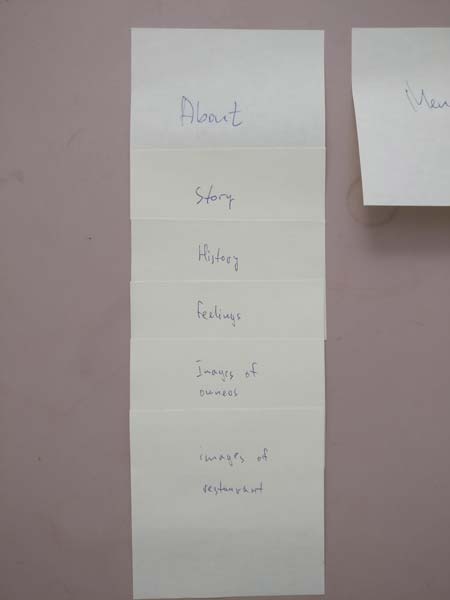 About
Men
Story
History
Feelings
Images of
owners
images of
restaurant